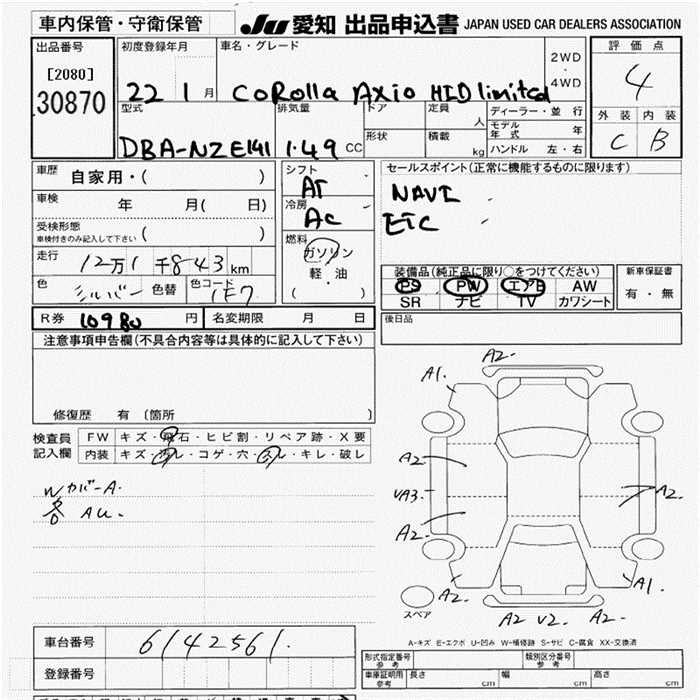 車内保管・守衛保管 JU 愛知 出品申込書 JAPAN USED CAR DEALERS ASSOCIATION
出品番号 初度登録年月 車名・グレード 2WD ・ 4WD 評価点
[2080]
30870
22 1 月 COROlla AXio HID limited 4
型式 排気量 ドア 定員 人 ディーラー・並行 外装 内装
形状 積載 kg モデル年式 年
DBA-NZE141 1.49 CC ハンドル 左・右 C B
車歴 自家用・( ) シフト セールスポイント(正常に機能するものに限ります)
AT NAVI
車検 年 月( 日) 冷房
AC ETC
受検形態 車検付きのみ記入して下さい ( )
燃料
走行 12万1千843km ガソリン
軽・油
( )
装備品(純正品に限り○をつけてください) 新車保証書
PS PW エアB AW 有・無
SR ナビ TV カワシート
色 シルバー 色替 色コード 1F7
R券 10980 円 名変期限 月 日 後日品
注意事項申告欄(不具合内容等は具体的に記入して下さい)
修復歴 有 〔箇所 〕
検査員記入欄 FW キズ・飛石・ヒビ割・リペア跡・X要
内装 キズ・ ・コゲ・穴・ ・キレ・破レ
Wカバー A.
各 AU.
A2.
A1.
A2
VA3
A2.
A2.
A2.
A1.
スペア
A2 V2 A2.
A-キズ E-エクボ U-凹み W-補修跡 S-サビ C-腐食 XX-交換済
車台番号 6142561.
登録番号
形式指定番号 参考 類別区分番号 参考
車庫証明用 参考 長さ cm 幅 cm 高さ cm